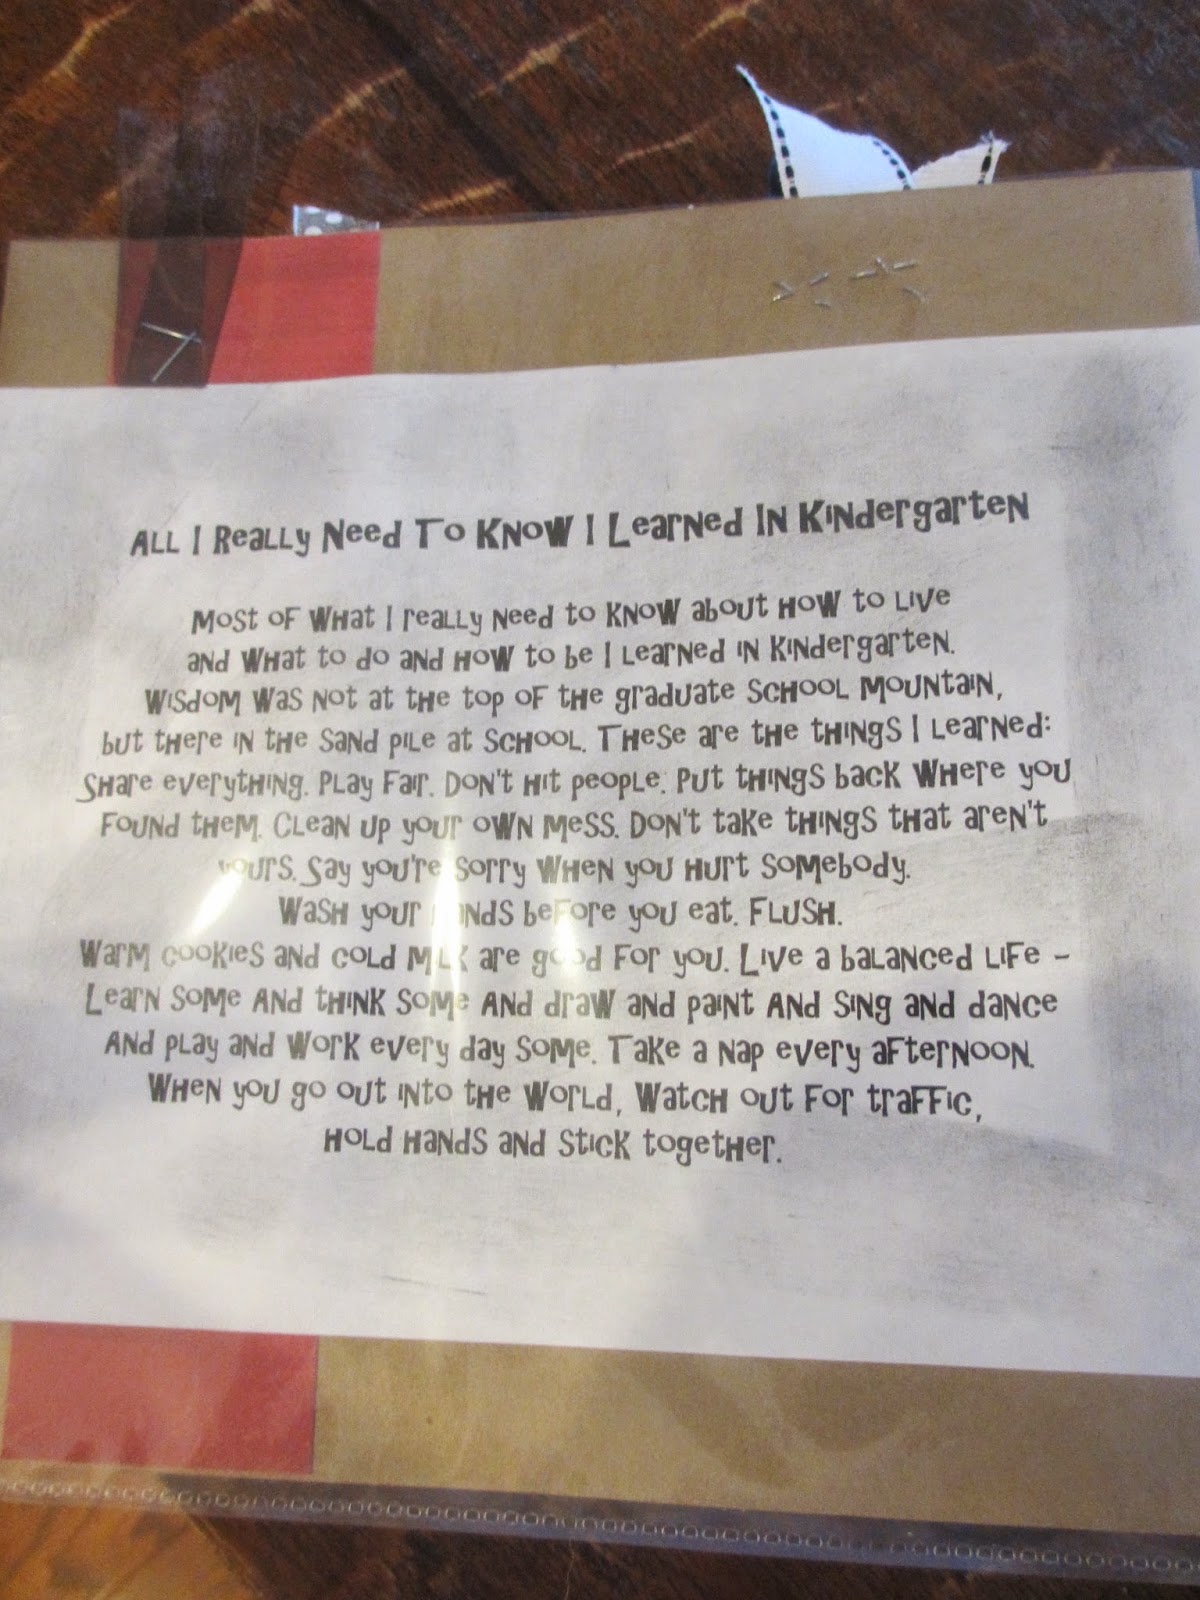 All I Really Need To Know I Learned In Kindergarten
Most of what I really need to know about how to live
and what to do and how to be I learned in kindergarten.
Wisdom was not at the top of the graduate school mountain,
but there in the sand pile at school. These are the things I learned:
Share everything. Play fair. Don't hit people. Put things back where you
found them. Clean up your own mess. Don't take things that aren't
yours. Say you're sorry when you hurt somebody.
Wash your hands before you eat. Flush.
Warm cookies and cold milk are good for you. Live a balanced life –
Learn some and think some and draw and paint and sing and dance
and play and work every day some. Take a nap every afternoon.
When you go out into the world, watch out for traffic,
hold hands and stick together.